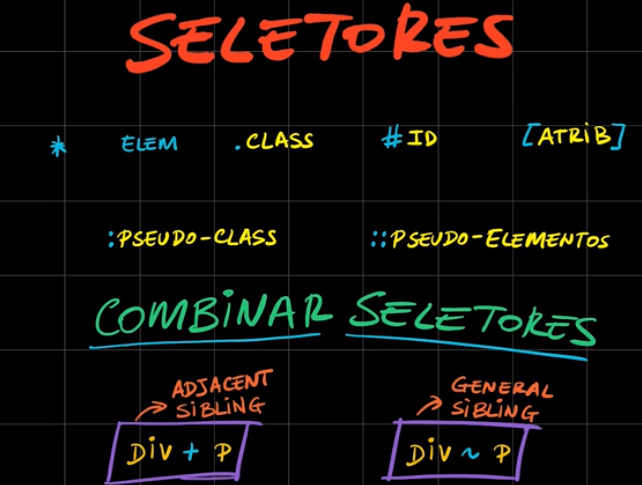 SELETORES
* ELEM .CLASS #ID [ATRIB]
:PSEUDO-CLASS ::PSEUDO-ELEMENTOS
COMBINAR SELETORES
ADJACENT SIBLING
GENERAL SIBLING
DIV + P
DIV ~ P